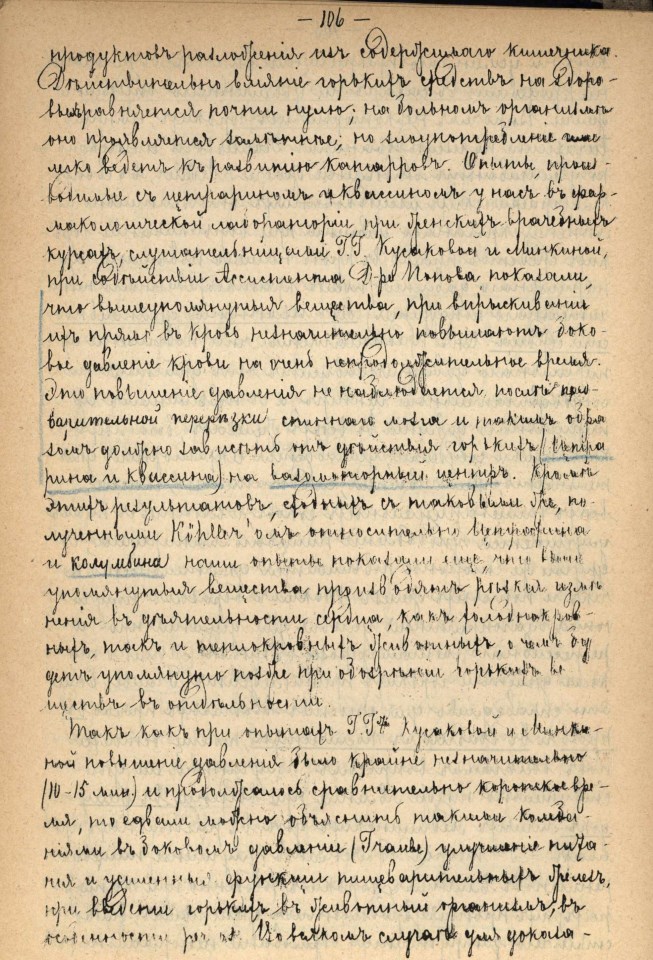 — 106 —
продуктовъ разложенія изъ содержимаго кишечника.
Дѣйствительно вліяніе горькихъ средствъ на здоро-
выхъ равняется почти нулю; на больномъ организмѣ
оно проявляется замѣтнѣе; но злоупотребленіе ими
легко ведетъ къ развитію катарровъ. Опыты, произ-
водимые съ цетрариномъ и квассиномъ у насъ въ фар-
макологической лабораторіи при женскихъ врачебныхъ
курсахъ, слушательницами Г.Г. Кусаковой и Минкиной,
при содѣйствіи Ассистента Д-ра Попова показали,
что вышеупомянутыя вещества, при впрыскиваніи
ихъ прямо въ кровь незначительно повышаютъ боко-
вое давленіе крови на очень непродолжительное время.
Это повышеніе давленія не наблюдается послѣ пред-
варительной перерѣзки спиннаго мозга и такимъ обра
зомъ должно зависѣть отъ дѣйствія горькихъ (цетра
рина и квассина) на вазомоторный центръ. Кромѣ
этихъ результатовъ, сходныхъ съ таковыми же, по-
лученными Köhler'омъ относительно цетрарина
и колумбина наши опыты показали еще, что выше
упомянутыя вещества производятъ рѣзкія измѣ
ненія въ дѣятельности сердца, какъ холоднокров-
ныхъ, такъ и теплокровныхъ животныхъ, о чемъ бу
детъ упомянуто позже при обозрѣніи горькихъ ве
ществъ въ отдѣльности.
Такъ какъ при опытахъ Г.Г. Кусаковой и Минки-
ной повышеніе давленія было крайне незначительно
(10-15 мм.) и продолжалось сравнительно короткое вре-
мя, то едвали можно объяснить такими колеба-
ніями въ боковомъ давленіи (Traube) улучшеніе пита-
нія и усиленныя функціи пищеварительныхъ железъ,
при введеніи горькихъ въ животный организмъ, въ
особенности per os. Во всякомъ случаѣ для доказа-